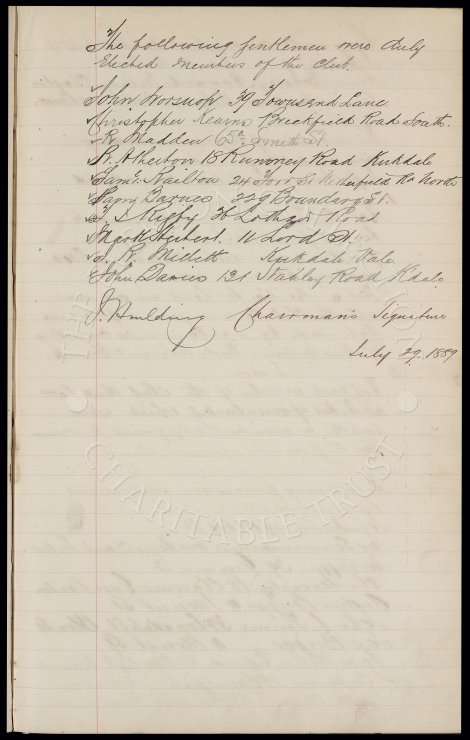 The following Gentlemen were duly
Elected members of the Club.
John Worsnop 39 Townsend Lane.
Christopher Kearns Breckfield Road South.
R. Madden 65a Smith St
R. Atherton 18 Rumney Road Kirkdale
Saml. Railton 24 St Netherfield Rd North
Harry Barnes 229 Boundary St.
T. S. Rigby 36 Road
Herbert. 11 Lord St.
J. R. Millett Kirkdale Vale
John Davies 131 Road K'dale
J. Houlding Chairman's Signature
July 29. 1889
THE
CHARITABLE TRUST